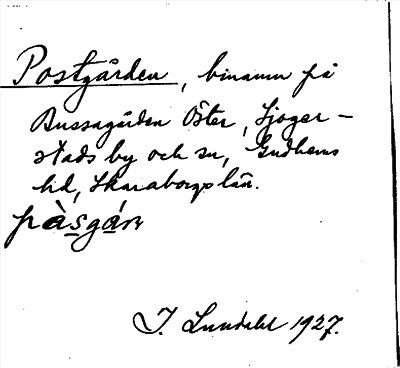 Postgården, binamn på
Bussagården Öster, Sjoger-
stads by och sn, Gudhems
hd, Skaraborgs län.
pàsgár
I. Lundahl 1927.